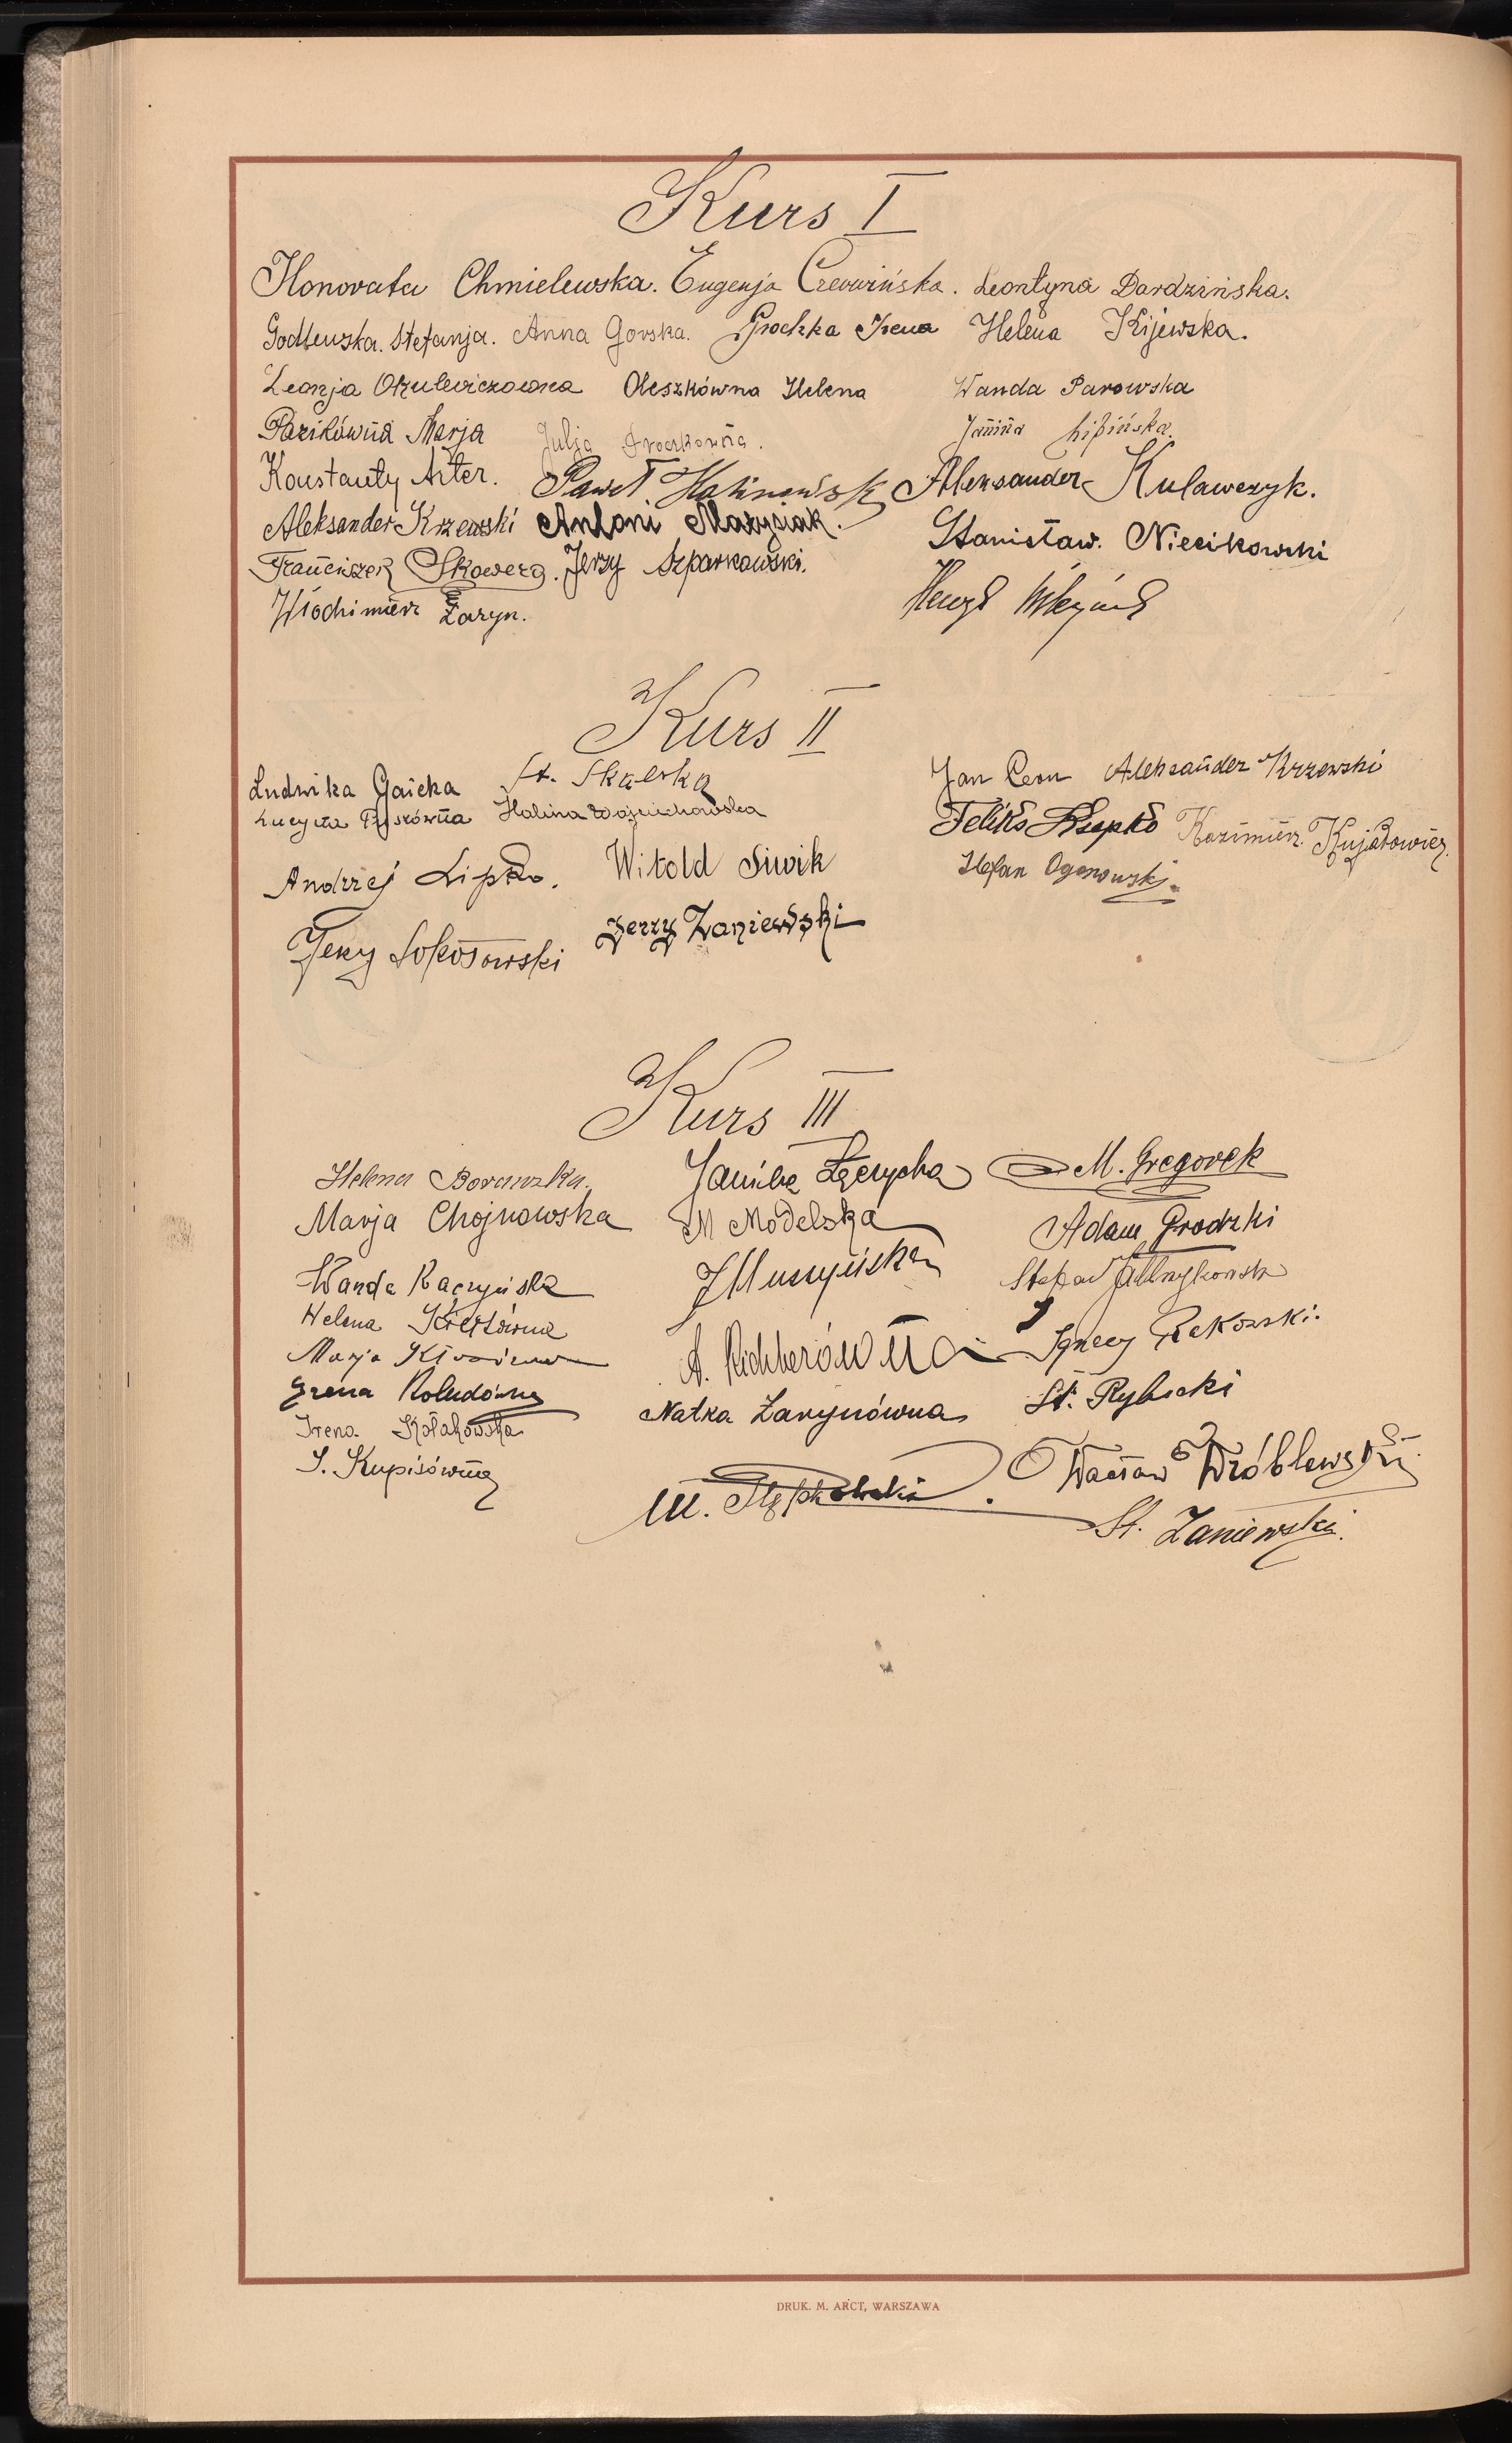 Kurs I
Honorata Chmielewska. Eugenja Czerwińska. Leontyna Dardzińska.
Godlewska. Stefanja. Anna Gorska. Grochka Irena Helena Kijewska.
Leonja Okulewiczowna Oleszkówna Helena Wanda Parowska
Pazikówna Marja Julja Janina Lipińska.
Konstanty Arter. Paweł Aleksander Kulawczyk.
Aleksander Krzewski Antoni Marysiak. Stanisław. Niecikowski
Franciszek Skowera. Jerzy Szparkowski.
Włodzimierz Żaryn. Henryk
Kurs II
Ludwika Gaicka St. Skalska Jan Leon Aleksander Krzewski
Lucyna Halina Wojciechowska Feliks Rzepko Kazimierz Kujałowicz.
Andrzej Lipko. Witold Siwik Stefan Ogonowski.
Jerzy Sokołowski Jerzy Zaniewski
Kurs III
Helena Borawska. Janina Łęczycka M. Gregorek
Marja Chojnowska M Modelska Adam Grodzki
Wanda Kaczyńska J Muszyńska Stefan
Helena Marja A. Richterówna Ignacy Rekowski.
Irena Koludówna Natka Żarynówna St. Rybicki
Irena Kołakowska
J. Kupisówna M. Wacław Wróblewski
St. Zaniewski.
DRUK. M. ARCT, WARSZAWA